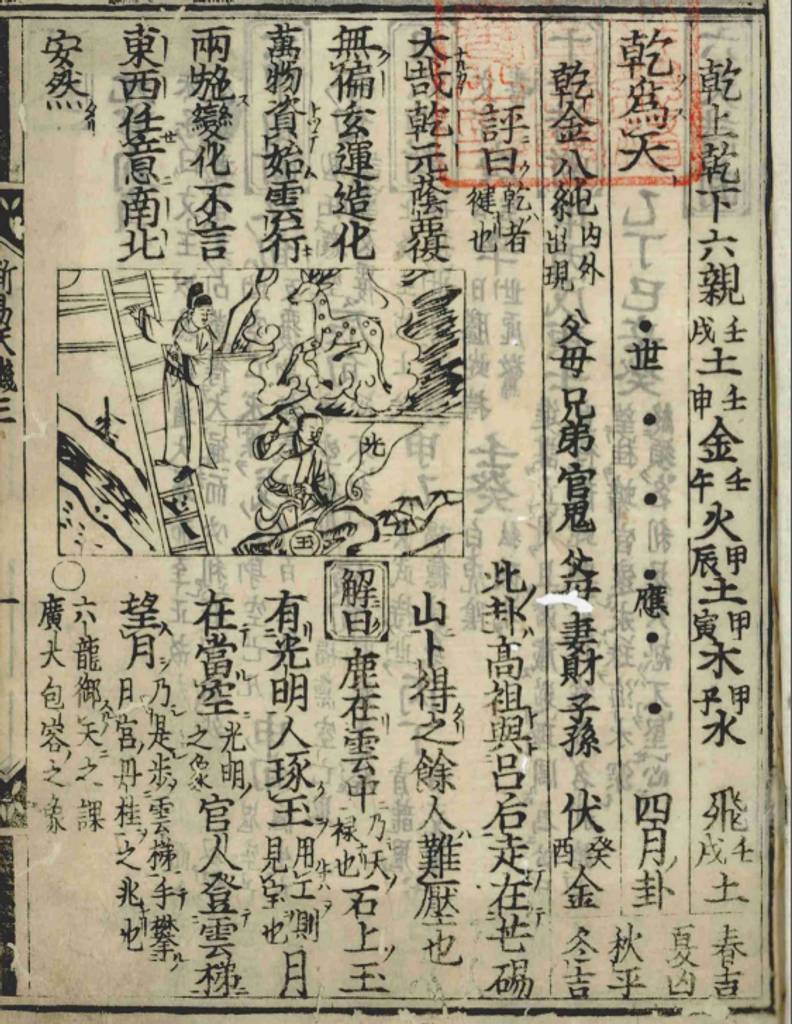 乾上乾下六親 壬戌土 壬申金 壬午火 甲辰土 甲寅木 甲子水 飛壬戌土 春吉
乾爲天 世 應 四月卦 夏凶
乾金八純 内外出現 父母 兄弟 官鬼 父母 妻財 子孫 伏癸酉金 秋平
冬吉
評曰 乾者健也
此卦高祖與呂后走在芒碭
大哉乾元蔭覆
山下得之餘人難壓也
無偏玄運造化
解曰 鹿在雲中 乃天禄也 石上玉
萬物資始雲行
有光明人琢玉 用工則見宝也 月
兩施變化不言
在當空 光明之象 官人登雲梯
東西任意南北
望月 乃是步雲梯手攀月宮丹桂之兆也
安然
○ 六龍御天之課
廣大包容之象
北
玉
一